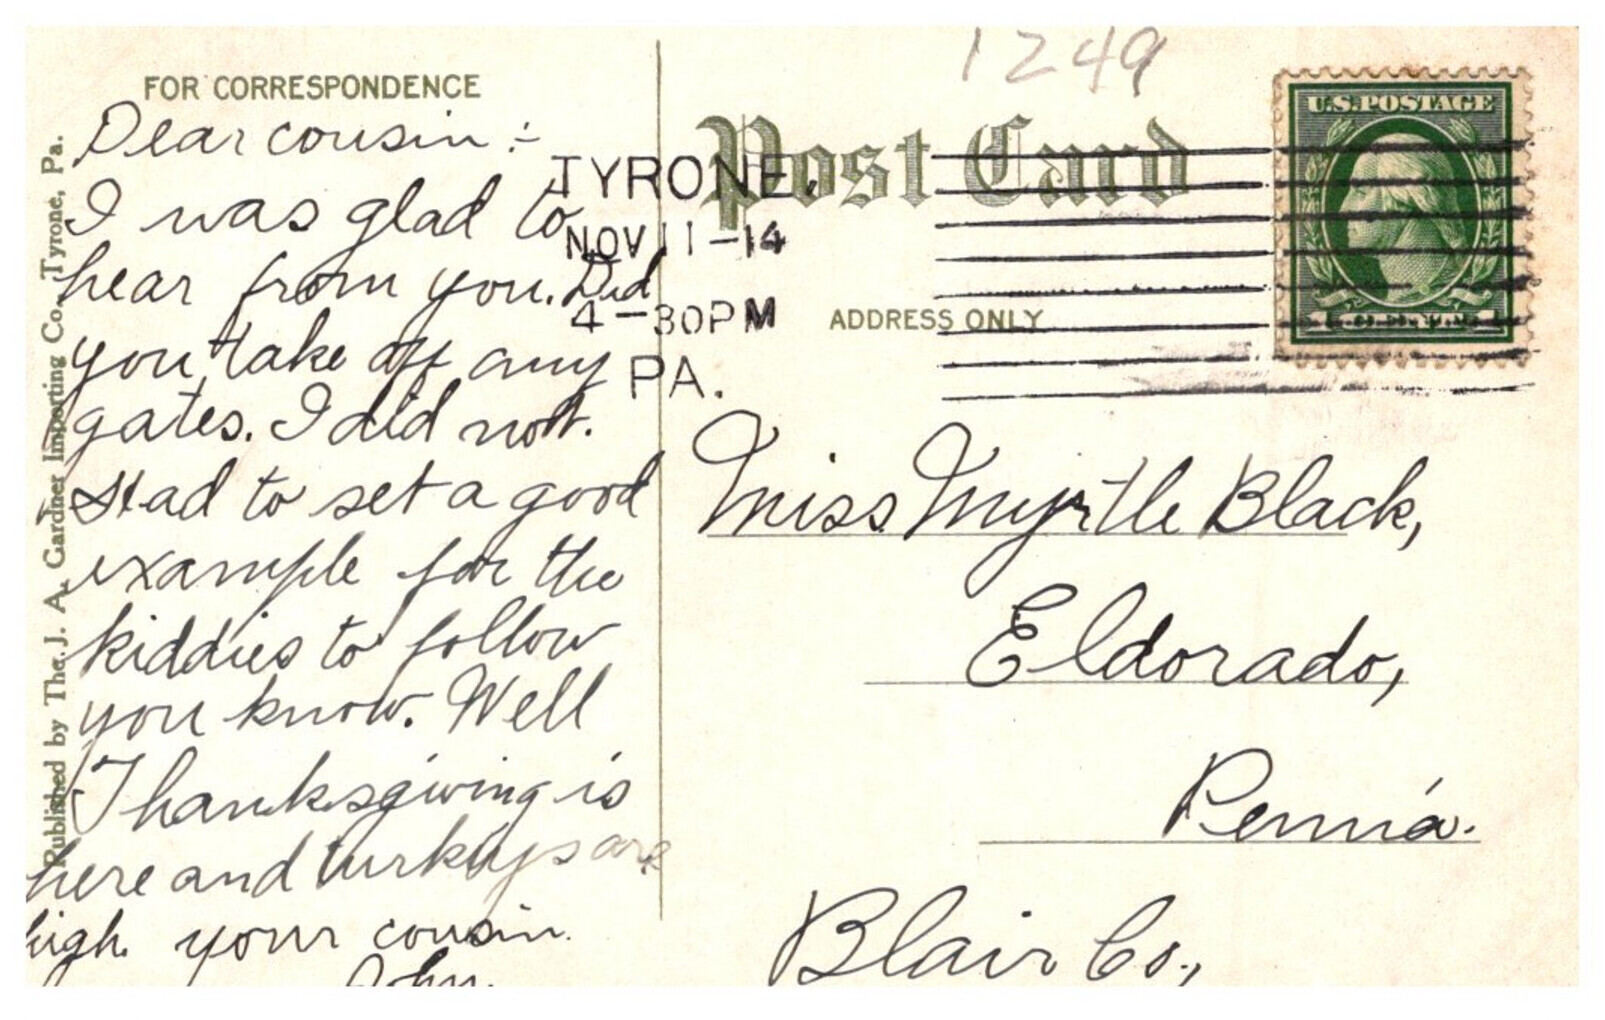 1249
FOR CORRESPONDENCE
Dear cousin :-
I was glad to
hear from you. Did
you take off any
gates. I did not.
Had to set a good
example for the
kiddies to follow
you know. Well
Thanksgiving is
here and turkeys are
high. your cousin.
John.
Published by The J. A. Gardner Importing Co., Tyrone, Pa.
Post Card
TYRONE,
NOV 11-14
4-30PM
PA.
ADDRESS ONLY
U.S.POSTAGE
Miss Myrtle Black,
Eldorado,
Penn'a.
Blair Co.,